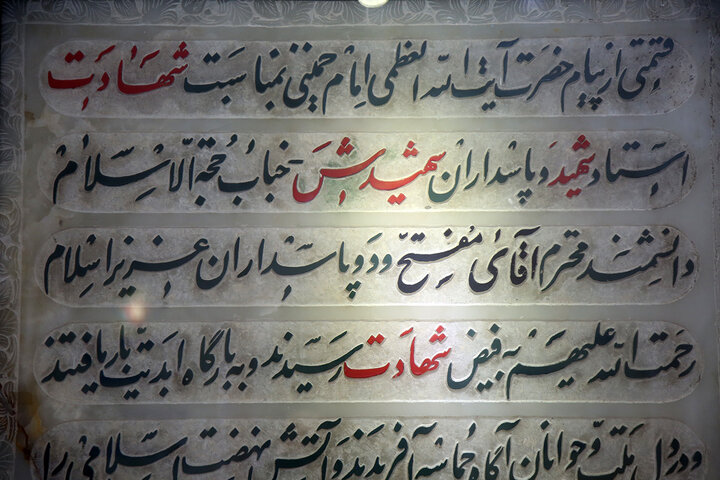 قسمتی از پیام حضرت آیت الله العظمی امام خمینی بمناسبت شهادت
استاد شهید و پاسداران شهیدش - جناب حجة الاسلام
دانشمند محترم آقای مفتح و دو پاسداران عزیز اسلام
رحمت الله علیهم به فیض شهادت رسیدند و به بارگاه ابدیت بار یافتند
و در دل ملت و جوانان آگاه حماسه آفریدند و آتش نهضت اسلامی را